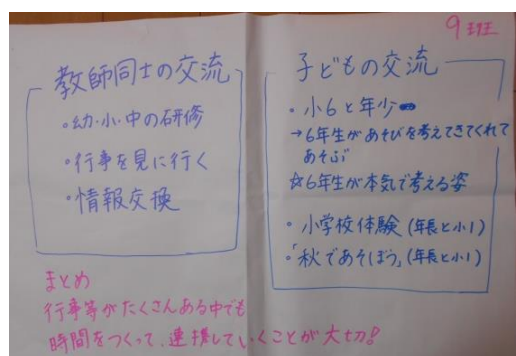 9班
教師同士の交流
・幼・小・中の研修
・行事を見に行く
・情報交換
子どもの交流
・小6と年少
→6年生があそびを考えてきてくれて
あそぶ
☆6年生が本気で考える姿
・小学校体験(年長と小1)
・「秋であそぼう」(年長と小1)
まとめ
行事等がたくさんある中でも
時間をつくって、連携していくことが大切!